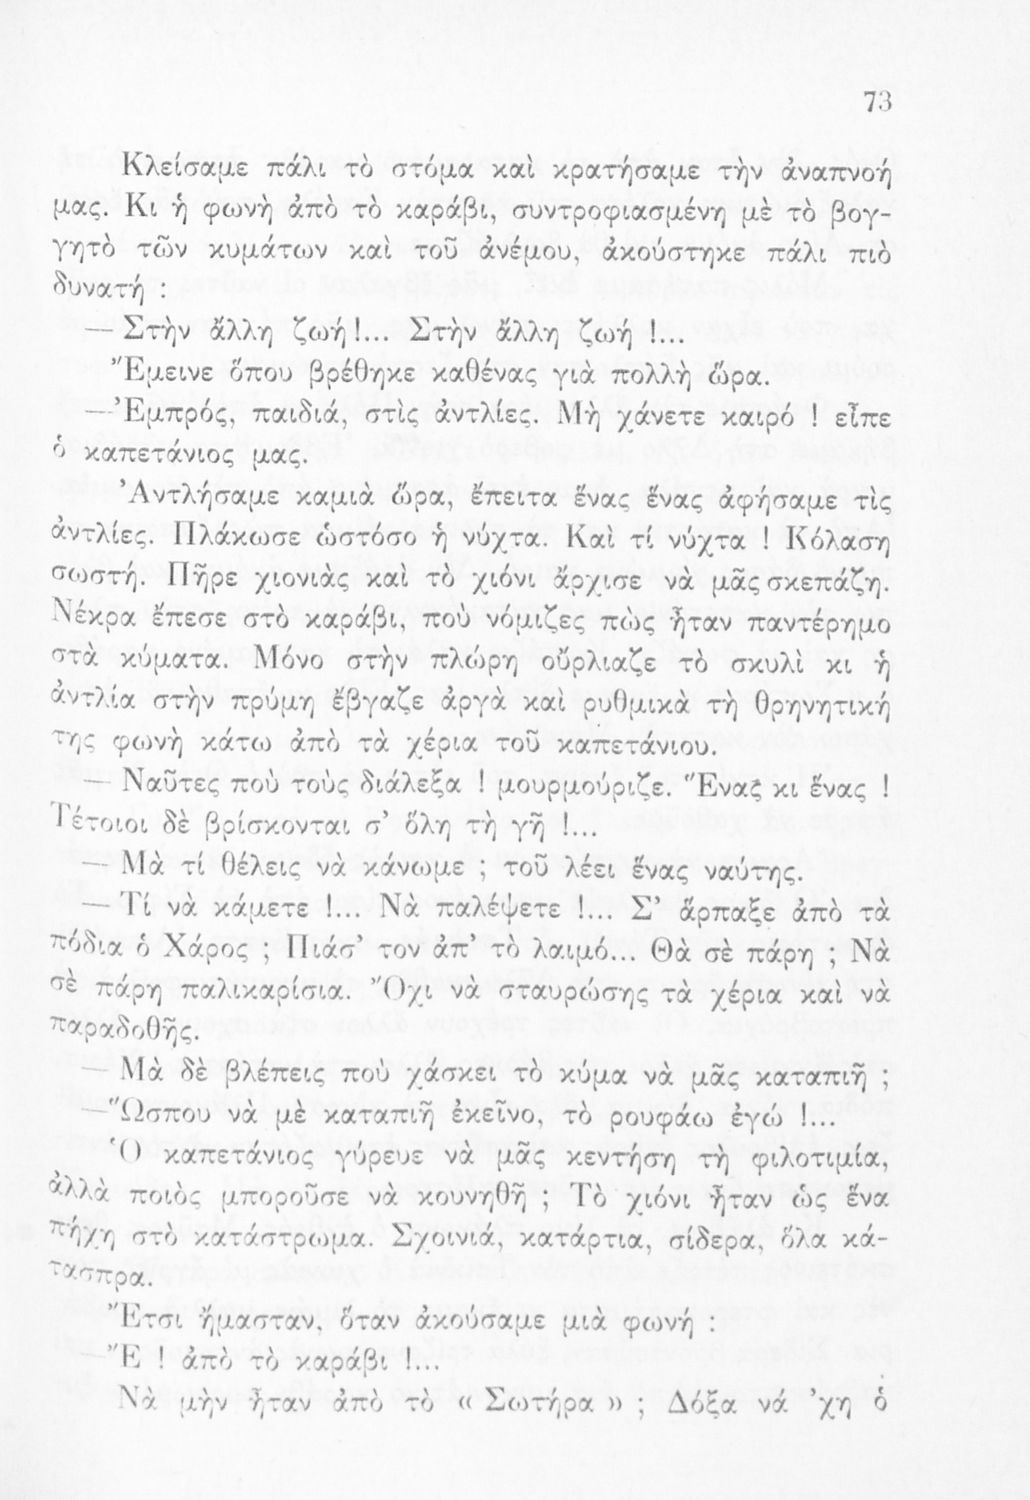 73
Κλείσαμε πάλι τὸ στόμα καὶ κρατήσαμε τὴν ἀναπνοή
μας. Κι ἡ φωνὴ ἀπὸ τὸ καράβι, συντροφιασμένη μὲ τὸ βογ-
γητὸ τῶν κυμάτων καὶ τοῦ ἀνέμου, ἀκούστηκε πάλι πιὸ
δυνατή :
— Στὴν ἄλλη ζωή!... Στὴν ἄλλη ζωή !...
Ἔμεινε ὅπου βρέθηκε καθένας γιὰ πολλὴ ὥρα.
—Ἐμπρός, παιδιά, στὶς ἀντλίες. Μὴ χάνετε καιρό ! εἶπε
ὁ καπετάνιος μας.
Ἀντλήσαμε καμιὰ ὥρα, ἔπειτα ἕνας ἕνας ἀφήσαμε τὶς
ἀντλίες. Πλάκωσε ὡστόσο ἡ νύχτα. Καὶ τί νύχτα ! Κόλαση
σωστή. Πῆρε χιονιὰς καὶ τὸ χιόνι ἄρχισε νὰ μᾶς σκεπάζη.
Νέκρα ἔπεσε στὸ καράβι, ποὺ νόμιζες πὼς ἦταν παντέρημο
στὰ κύματα. Μόνο στὴν πλώρη οὔρλιαζε τὸ σκυλὶ κι ἡ
ἀντλία στὴν πρύμη ἔβγαζε ἀργὰ καὶ ρυθμικὰ τὴ θρηνητική
της φωνὴ κάτω ἀπὸ τὰ χέρια τοῦ καπετάνιου.
— Ναῦτες ποὺ τοὺς διάλεξα ! μουρμούριζε. Ἕνας κι ἕνας !
Τέτοιοι δὲ βρίσκονται σ’ ὅλη τὴ γῆ !...
— Μὰ τί θέλεις νὰ κάνωμε ; τοῦ λέει ἕνας ναύτης.
— Τί νὰ κάμετε !... Νὰ παλέψετε !... Σ’ ἅρπαξε ἀπὸ τὰ
πόδια ὁ Χάρος ; Πιάσ’ τον ἀπ’ τὸ λαιμό... Θὰ σὲ πάρη ; Νὰ
σὲ πάρη παλικαρίσια. Ὄχι νὰ σταυρώσης τὰ χέρια καὶ νὰ
παραδοθῆς.
— Μὰ δὲ βλέπεις ποὺ χάσκει τὸ κύμα νὰ μᾶς καταπιῆ ;
—Ὥσπου νὰ μὲ καταπιῆ ἐκεῖνο, τὸ ρουφάω ἐγώ !...
Ὁ καπετάνιος γύρευε νὰ μᾶς κεντήση τὴ φιλοτιμία,
ἀλλὰ ποιὸς μποροῦσε νὰ κουνηθῆ ; Τὸ χιόνι ἦταν ὡς ἕνα
πήχη στὸ κατάστρωμα. Σχοινιά, κατάρτια, σίδερα, ὅλα κά-
τασπρα.
Ἔτσι ἤμασταν, ὅταν ἀκούσαμε μιὰ φωνή :
—Ἔ ! ἀπὸ τὸ καράβι !...
Νὰ μὴν ἦταν ἀπὸ τὸ « Σωτήρα » ; Δόξα νά ’χη ὁ